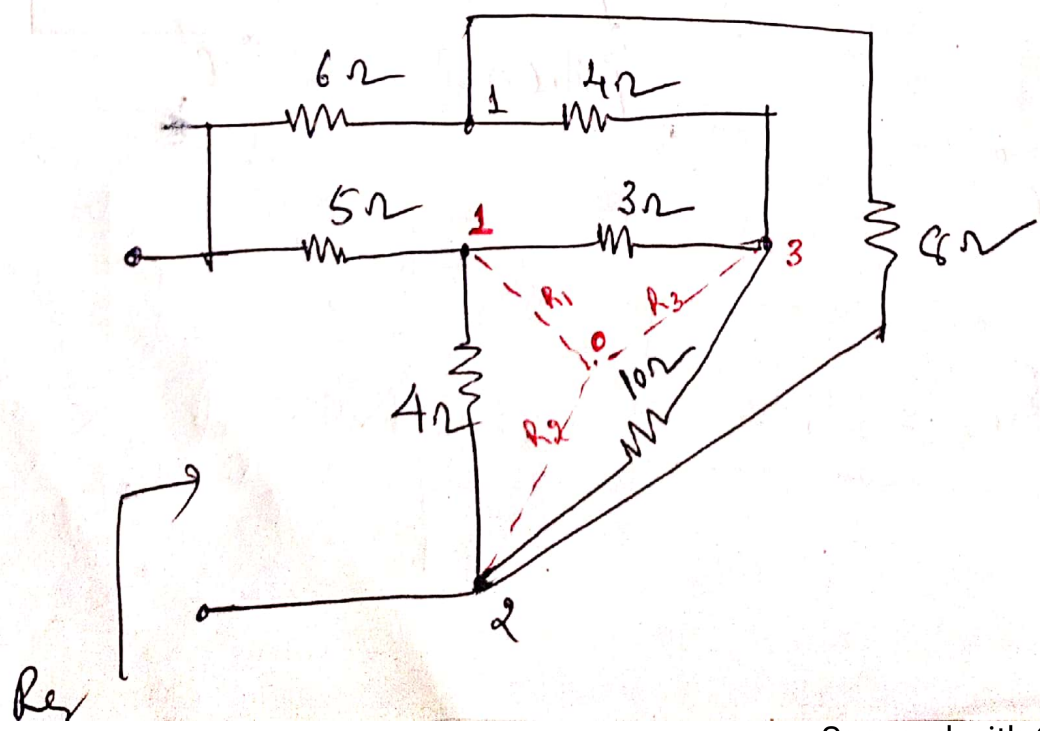 6Ω
4Ω
1
5Ω
1
3Ω
3
8Ω
R1
R3
0
10Ω
4Ω
R2
2
Req